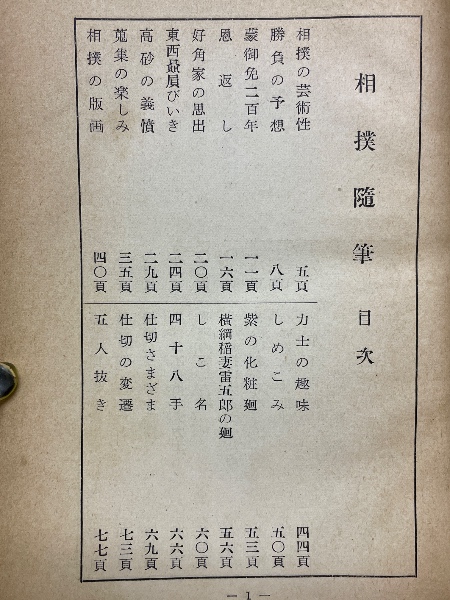 相撲随筆 目次
相撲の芸術性 五頁
勝負の予想 八頁
蒙御免二百年 一一頁
恩返し 一六頁
好角家の思出 二〇頁
東西贔屓びいき 二四頁
高砂の義憤 二九頁
蒐集の楽しみ 三五頁
相撲の版画 四〇頁
力士の趣味 四四頁
しめこみ 五〇頁
紫の化粧廻 五三頁
横綱稲妻雷五郎の廻 五六頁
しこ名 六〇頁
四十八手 六六頁
仕切さまざま 六九頁
仕切の変遷 七三頁
五人抜き 七七頁
— 1 —